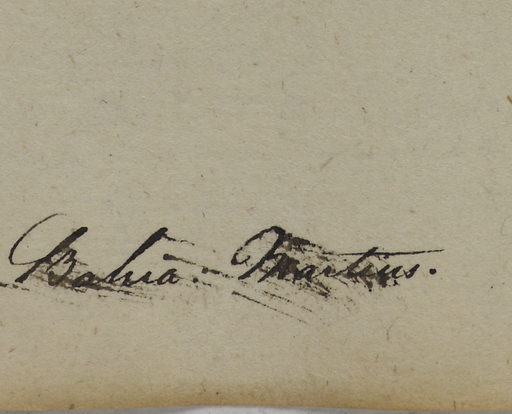 Bahia. Martius.